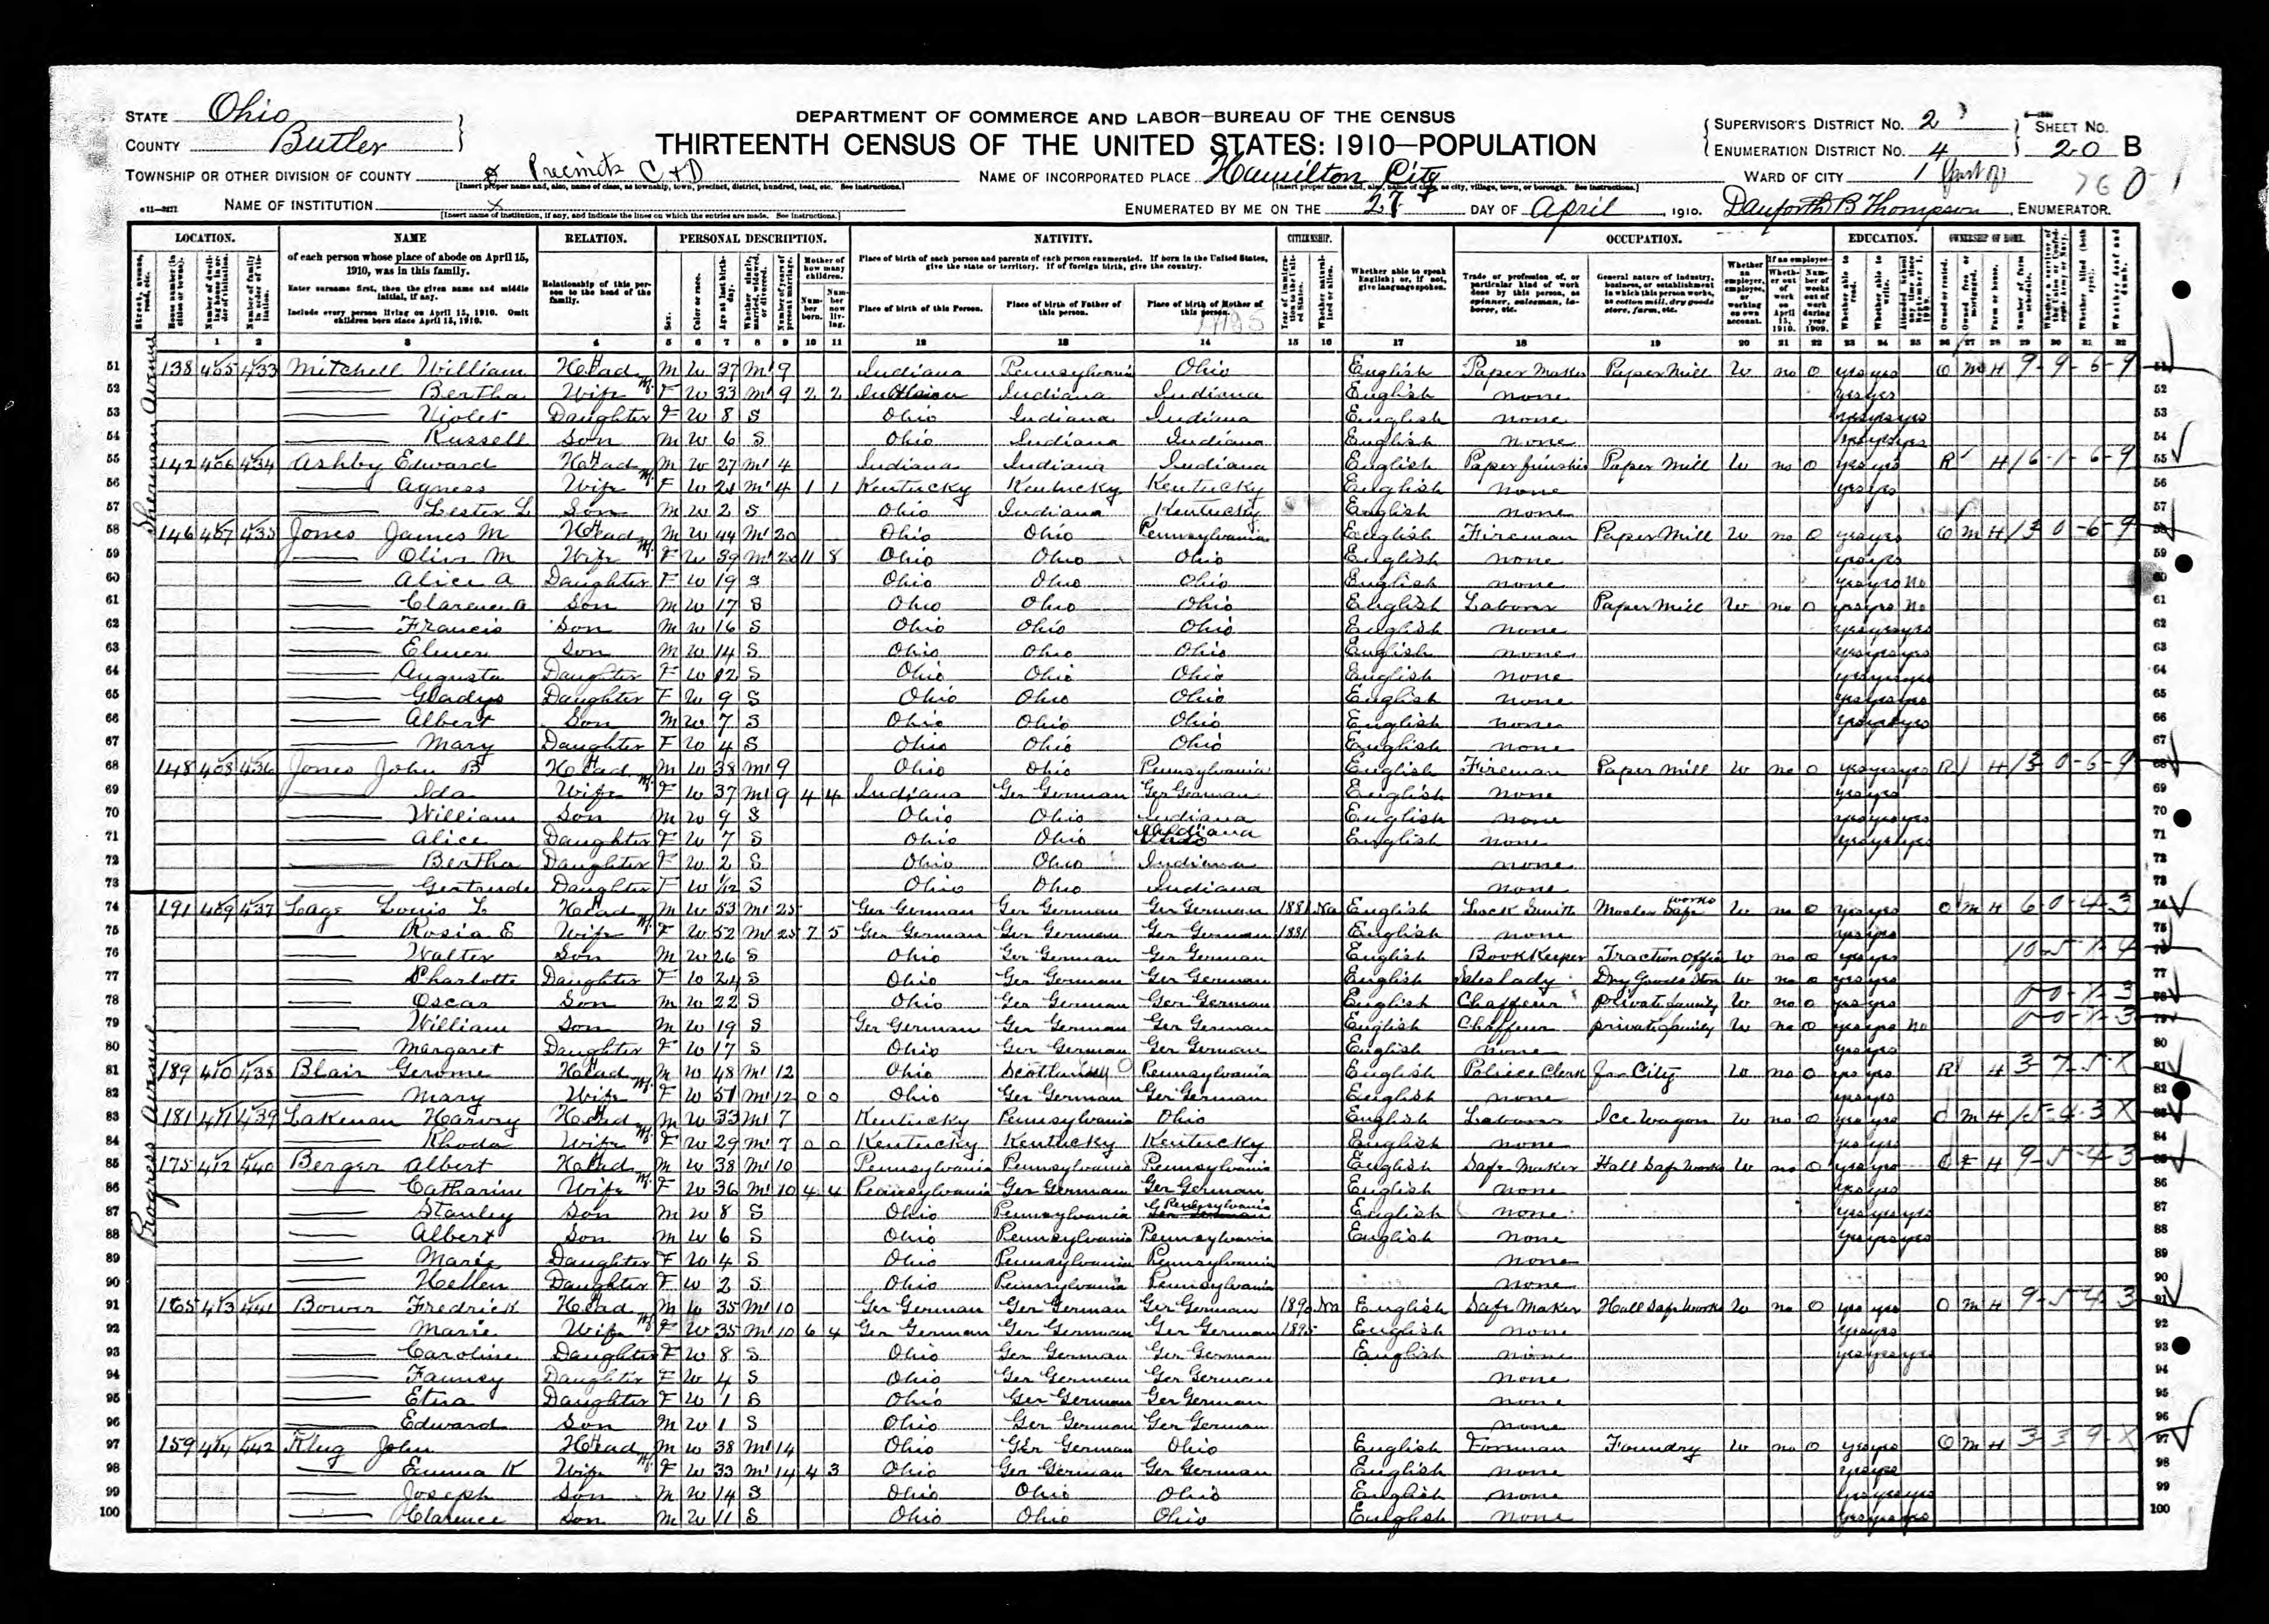 STATE Ohio
COUNTY Butler
DEPARTMENT OF COMMERCE AND LABOR—BUREAU OF THE CENSUS
THIRTEENTH CENSUS OF THE UNITED STATES: 1910—POPULATION
SUPERVISOR'S DISTRICT No. 2
ENUMERATION DISTRICT No. 4
SHEET No. 20 B
TOWNSHIP OR OTHER DIVISION OF COUNTY Precincts C & D
NAME OF INCORPORATED PLACE Hamilton City
WARD OF CITY 1 (part of)
NAME OF INSTITUTION X
ENUMERATED BY ME ON THE 27 DAY OF April, 1910. Danforth B Thompson, ENUMERATOR.
LOCATION. NAME RELATION. PERSONAL DESCRIPTION. NATIVITY. CITIZENSHIP. OCCUPATION. EDUCATION. OWNERSHIP OF HOME.
of each person whose place of abode on April 15, 1910, was in this family.
Enter surname first, then the given name and middle initial, if any.
Include every person living on April 15, 1910. Omit children born since April 15, 1910.
Relationship of this person to the head of the family.
Place of birth of each person and parents of each person enumerated. If born in the United States, give the state or territory. If of foreign birth, give the country.
Place of birth of this Person. Place of birth of Father of this person. Place of birth of Mother of this person.
Whether able to speak English; or, if not, give language spoken.
Sherman Avenue
51 138 405 433 Mitchell William Head M W 37 M1 9 Indiana Pennsylvania Ohio English Paper Maker Paper Mill W no 0 yes yes O M H 9-9-6-9
52 Bertha Wife F W 33 M1 9 2 2 Indiana Indiana Indiana English none yes yes
53 Violet Daughter F W 8 S Ohio Indiana Indiana English none yes yes yes
54 Russell Son M W 6 S Ohio Indiana Indiana English none yes yes yes
55 142 406 434 Ashby Edward Head M W 27 M1 4 Indiana Indiana Indiana English Paper finisher Paper Mill W no 0 yes yes R H
56 Agness Wife F W 21 M1 4 1 1 Kentucky Kentucky Kentucky English none yes yes
57 Lester L Son M W 2 S Ohio Indiana Kentucky English none
58 146 407 435 Jones James M Head M W 44 M1 20 Ohio Ohio Pennsylvania English Fireman Paper Mill W no 0 yes yes O M H
59 Olive M Wife F W 39 M1 20 11 8 Ohio Ohio Ohio English none yes yes
60 Alice A Daughter F W 19 S Ohio Ohio Ohio English none yes yes no
61 Clarence A Son M W 17 S Ohio Ohio Ohio English Laborer Paper Mill W no 0 yes yes no
62 Francis Son M W 16 S Ohio Ohio Ohio English none yes yes yes
63 Elmer Son M W 14 S Ohio Ohio Ohio English none yes yes yes
64 Augusta Daughter F W 12 S Ohio Ohio Ohio English none yes yes yes
65 Gladys Daughter F W 9 S Ohio Ohio Ohio English none yes yes yes
66 Albert Son M W 7 S Ohio Ohio Ohio English none yes yes yes
67 Mary Daughter F W 4 S Ohio Ohio Ohio English none
68 148 408 436 Jones John B Head M W 38 M1 9 Ohio Ohio Pennsylvania English Fireman Paper Mill W no 0 yes yes yes R H
69 Ida Wife F W 37 M1 9 4 4 Indiana Ger German Ger German English none yes yes
70 William Son M W 9 S Ohio Ohio Indiana English none yes yes yes
71 Alice Daughter F W 7 S Ohio Ohio Indiana English none yes yes yes
72 Bertha Daughter F W 2 S Ohio Ohio Indiana none
73 Gertrude Daughter F W 1/12 S Ohio Ohio Indiana none
Progress Avenue
74 191 409 437 Lage Louis L Head M W 53 M1 25 Ger German Ger German Ger German 1881 Na English Lock Smith Mosler Safe works W no 0 yes yes O M H 6 0-4-3
75 Rosia E Wife F W 52 M1 25 7 5 Ger German Ger German Ger German 1881 English none yes yes
76 Walter Son M W 26 S Ohio Ger German Ger German English BookKeeper Traction office W no 0 yes yes
77 Charlotte Daughter F W 24 S Ohio Ger German Ger German English Saleslady Dry Goods Store W no 0 yes yes
78 Oscar Son M W 22 S Ohio Ger German Ger German English Chaffeur private family W no 0 yes yes
79 William Son M W 19 S Ger German Ger German Ger German English Chaffeur private family W no 0 yes yes no
80 Margaret Daughter F W 17 S Ohio Ger German Ger German English none yes yes
81 189 410 438 Blair Gerome Head M W 48 M1 12 Ohio Pennsylvania English Police Clerk for City W no 0 yes yes R H 3-7-5-X
82 Mary Wife F W 51 M1 12 0 0 Ohio Ger German Ger German English none yes yes
83 181 411 439 Lakeman Harvey Head M W 33 M1 7 Kentucky Pennsylvania Ohio English Laborer Ice Wagon W no 0 yes yes O M H
84 Rhoda Wife F W 29 M1 7 0 0 Kentucky Kentucky Kentucky English none yes yes
85 175 412 440 Berger Albert Head M W 38 M1 10 Pennsylvania Pennsylvania Pennsylvania English Safe Maker Hall Safe Works W no 0 yes yes O F H 9-5-4-3
86 Catharine Wife F W 36 M1 10 4 4 Pennsylvania Ger German Ger German English none yes yes
87 Stanley Son M W 8 S Ohio Pennsylvania Pennsylvania English none yes yes yes
88 Albert Son M W 6 S Ohio Pennsylvania Pennsylvania English none yes yes yes
89 Marie Daughter F W 4 S Ohio Pennsylvania Pennsylvania none
90 Hellen Daughter F W 2 S Ohio Pennsylvania Pennsylvania none
91 165 413 441 Bower Fredrick Head M W 35 M1 10 Ger German Ger German Ger German 1890 Na English Safe Maker Hall Safe Works W no 0 yes yes O M H 9-5-4-3
92 Marie Wife F W 35 M1 10 6 4 Ger German Ger German Ger German 1895 English none yes yes
93 Caroline Daughter F W 8 S Ohio Ger German Ger German English none yes yes yes
94 Fanney Daughter F W 4 S Ohio Ger German Ger German none
95 Etna Daughter F W 1 S Ohio Ger German Ger German none
96 Edward Son M W 1 S Ohio Ger German Ger German none
97 159 414 442 Klug John Head M W 38 M1 14 Ohio Ger German Ohio English Forman Foundry W no 0 yes yes O M H 3-3-9-X
98 Emma K Wife F W 33 M1 14 4 3 Ohio Ger German Ger German English none yes yes
99 Joseph Son M W 14 S Ohio Ohio Ohio English none yes yes yes
100 Clarence Son M W 11 S Ohio Ohio Ohio English none yes yes yes